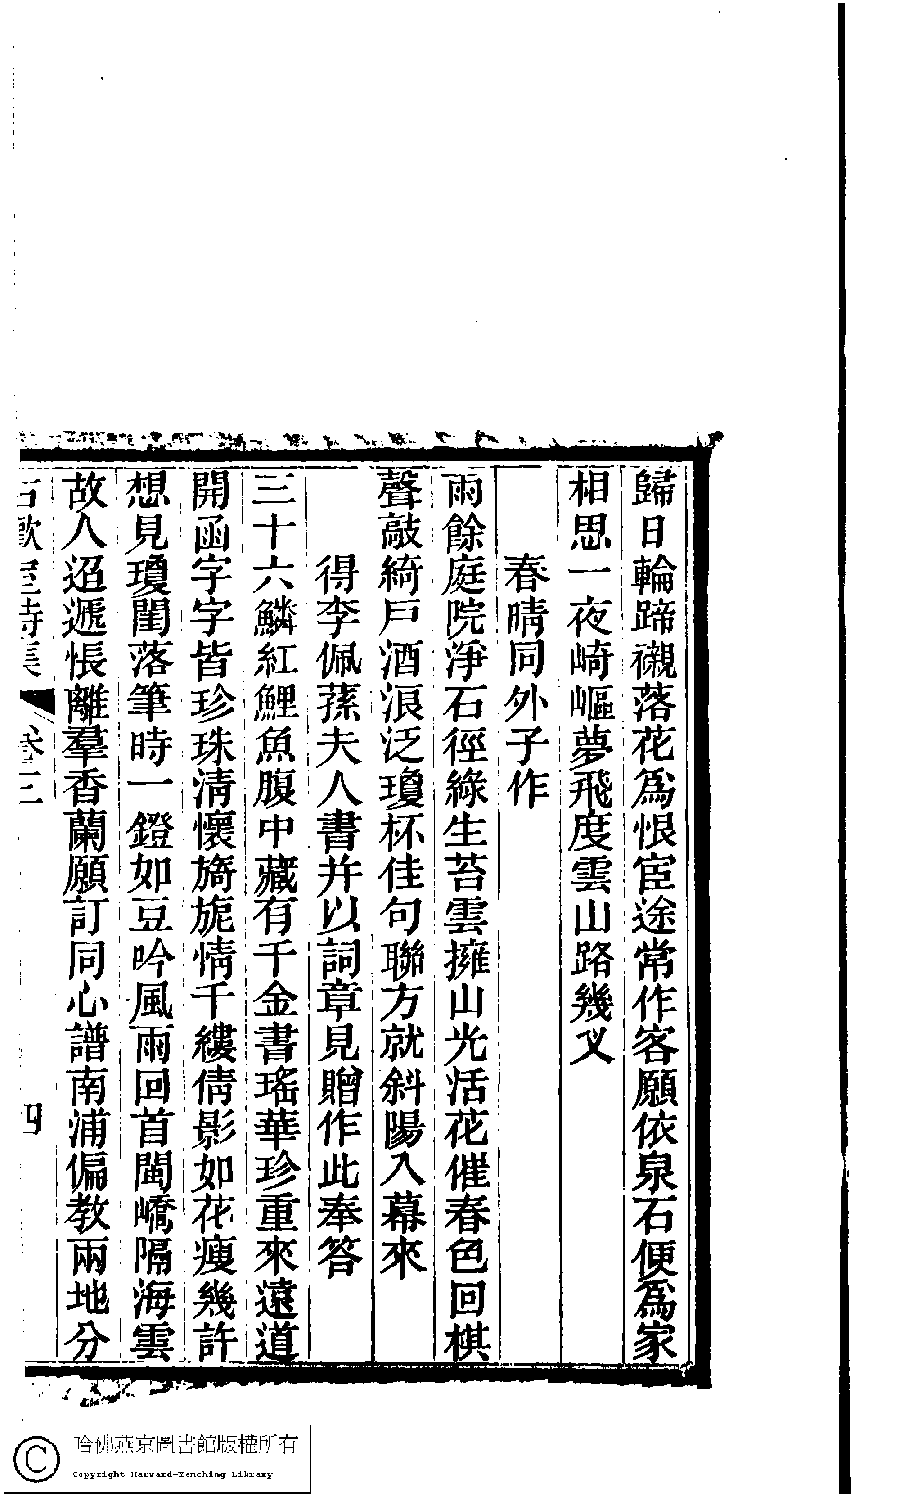 歸日輪蹄襯落花為恨宦途常作客願依泉石便為家
相思一夜崎嶇夢飛度雲山路幾叉
春晴同外子作
雨餘庭院淨石徑綠生苔雲擁山光活花催春色回棋
聲敲綺戶酒浪泛瓊杯佳句聯方就斜陽入幕來
得李佩蓀夫人書并以詞章見贈作此奉答
三十六鱗紅鯉魚腹中藏有千金書瑤華珍重來遠道
開函字字皆珍珠清懷旖旎情千縷倩影如花瘦幾許
想見瓊閨落筆時一鐙如豆吟風雨回首閩嶠隔海雲
故人迢遞悵離羣香蘭願訂同心譜南浦偏教兩地分
卷三
四
哈佛燕京圖書館版權所有
Copyright Harvard-Yenching Library